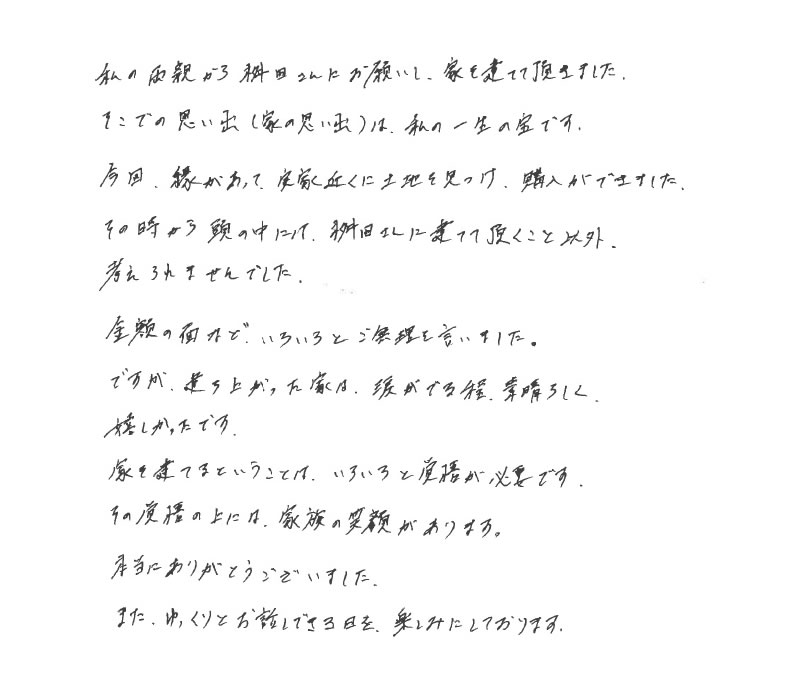 私の両親から桝田さんにお願いし、家を建てて頂きました。
そこでの思い出(家の思い出)は、私の一生の宝です。
今回、縁があって、実家近くに土地を見つけ、購入ができました。
その時から頭の中には、桝田さんに建てて頂くこと以外、
考えられませんでした。
金額の面など、いろいろとご無理を言いました。
ですが、建ち上がった家は、涙がでる程、素晴らしく、
嬉しかったです。
家を建てるということは、いろいろと覚悟が必要です。
その覚悟の上には、家族の笑顔があります。
本当にありがとうございました。
また、ゆっくりとお話しできる日を、楽しみにしております。